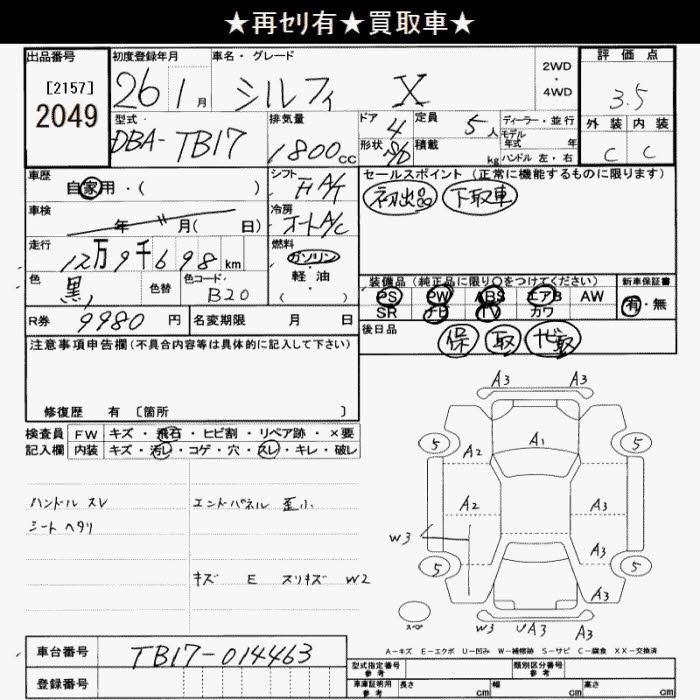 ★再ｾﾘ有★買取車★
出品番号 初度登録年月 車名・グレード 2WD・4WD 評価点
[2157]
2049
26 1月 シルフィ X 3.5
型式 排気量 ドア 定員 ディーラー・並行 外装 内装
DBA-TB17 1800cc 4 5人 モデル年式 年
形状 積載 kg ハンドル 左・右 C C
車歴 シフト セールスポイント (正常に機能するものに限ります)
自家用・( ) A/T 初出品 下取車
車検 冷房
年 月( 日) オートA/C
走行 燃料
12万9千698km ガソリン・軽油・( )
色 色替 色コード
黒 B20
装備品 (純正品に限り○をつけてください) 新車保証書
PS PW ABS エアB AW 有・無
SR TV カワ
R券 9980円 名変期限 月 日
後日品 保 取
注意事項申告欄(不具合内容等は具体的に記入して下さい)
修復歴 有 [箇所 ]
検査員 FW キズ・飛石・ヒビ割・リペア跡・×要
記入欄 内装 キズ・汚レ・コゲ・穴・スレ・キレ・破レ
ハンドル スレ エンドパネル 歪小
シート ヘタリ
キズ E スリキズ W2
A3 A3
5 A1 5
A2
A2 A3
W3
A3
5 5
A3
スペア W3 UA3 A3
A-キズ E-エクボ U-凹み W-補修跡 S-サビ C-腐食 XX-交換済
車台番号 TB17-014463
登録番号
型式指定番号 参考 類別区分番号 参考
車庫証明用 参考 長さ cm 幅 cm 高さ cm